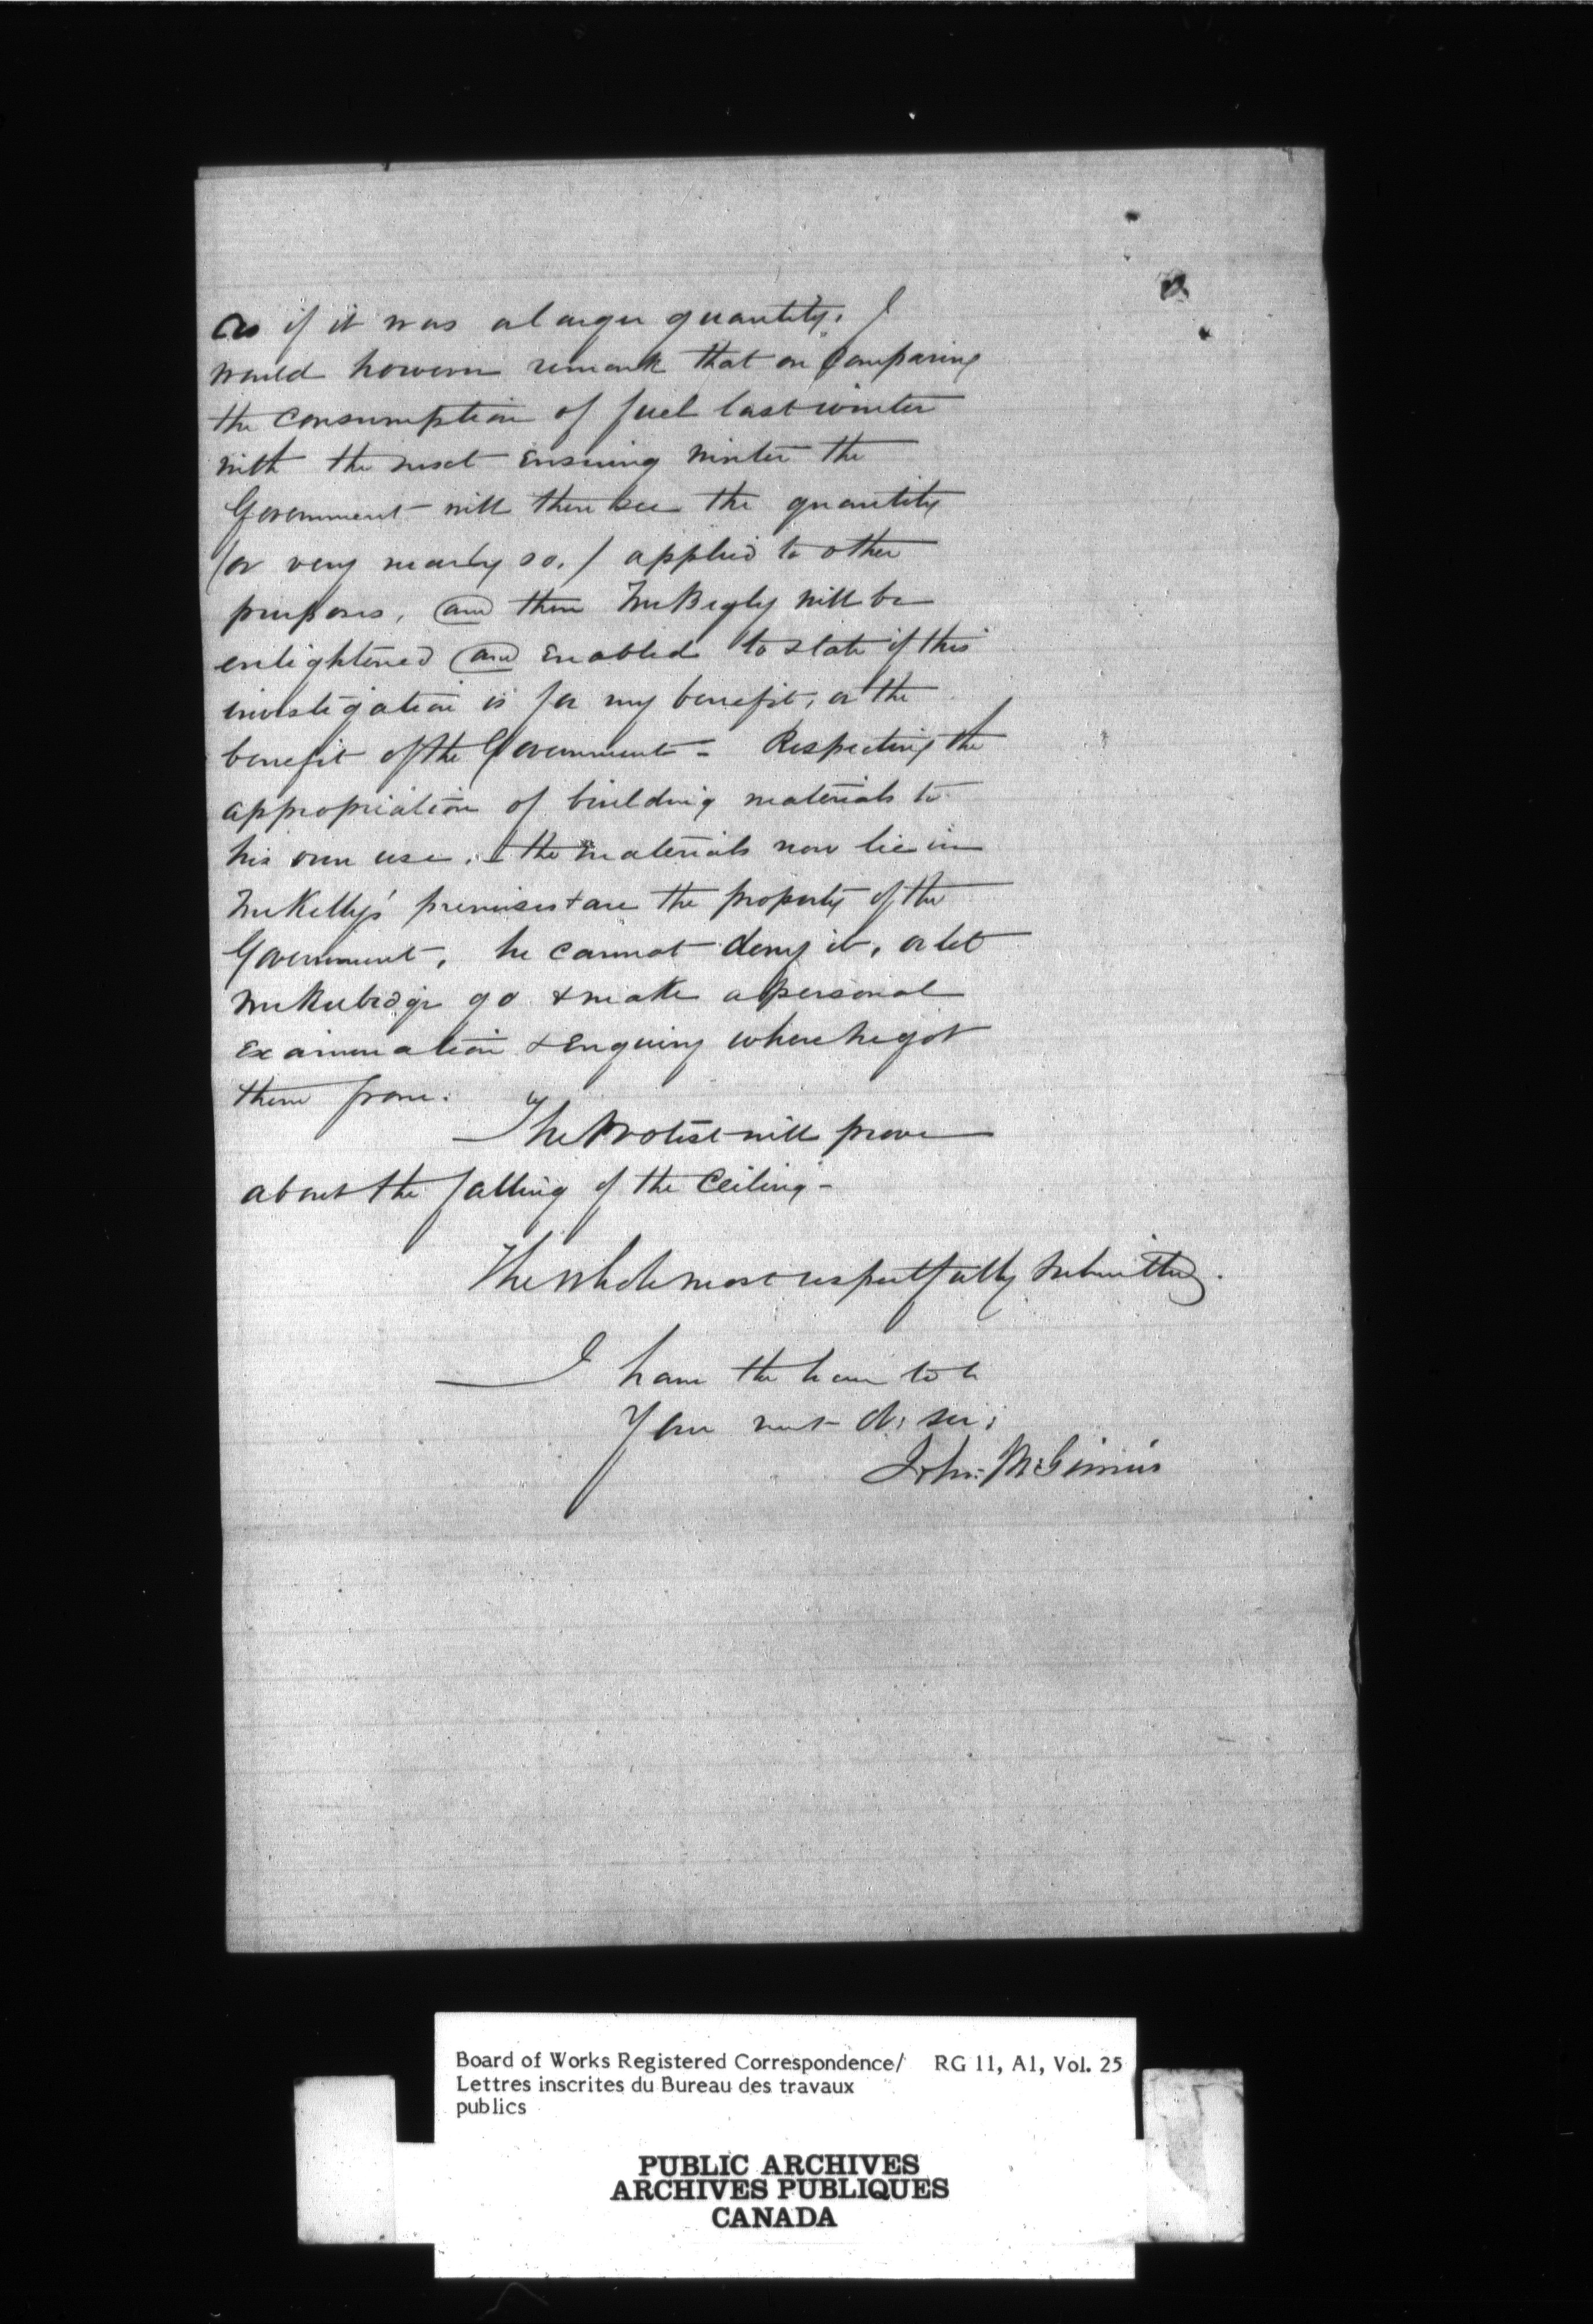 as if it was a larger quantity. I
would however remark that on Comparing
the Consumption of fuel last winter
with the next Ensuing winter the
Government will then see the quantity
(or very nearly so,) applied to other
purposes, and then Mr Begly will be
enlightened and Enabled to state if this
investigation is for my benefit, or the
benefit of the Government - Respecting the
appropriation of building materials to
his own use, - the materials now lie in
Mr Kelly's premises & are the property of the
Government, he cannot deny it, or let
Mr Rubidge go & make a personal
Examination & Enquiry where he got
them from.
The Protest will prove
about the falling of the Ceiling -
The whole most respectfully submitted.
I have the honr to be
Your mt ob; ser;
John McGinnis
Board of Works Registered Correspondence/ RG 11, A1, Vol. 25
Lettres inscrites du Bureau des travaux
publics
PUBLIC ARCHIVES
ARCHIVES PUBLIQUES
CANADA